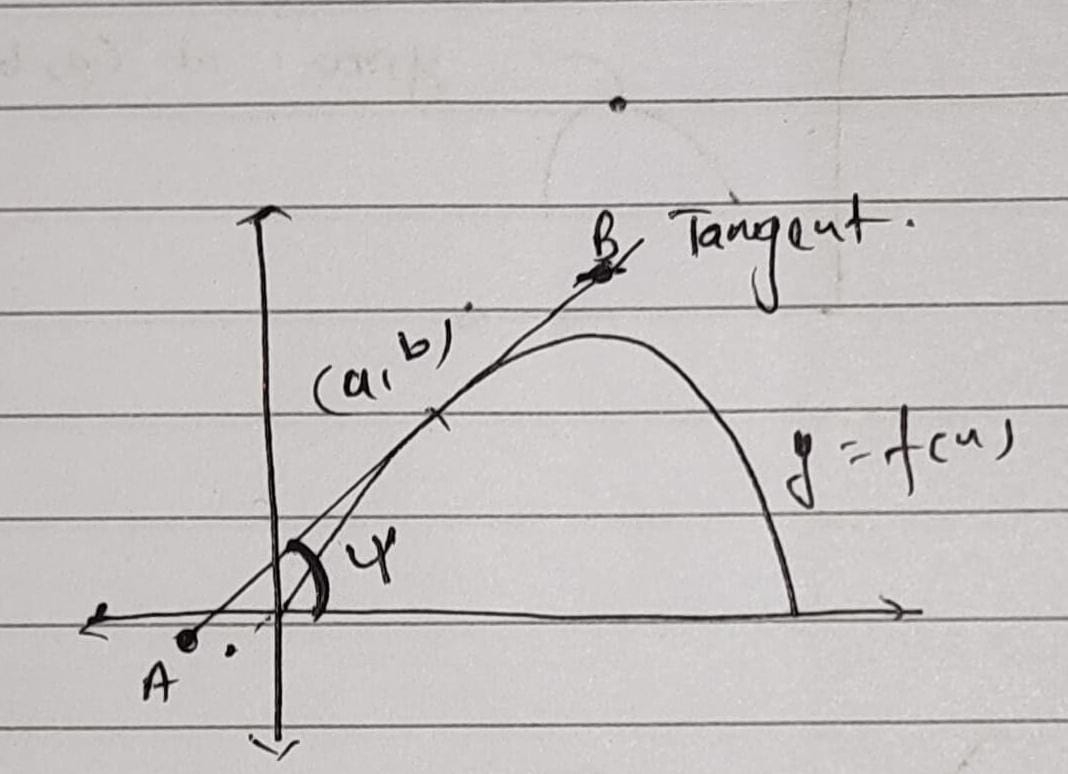 B Tangent.
(a, b)
y = f(x)
ψ
A